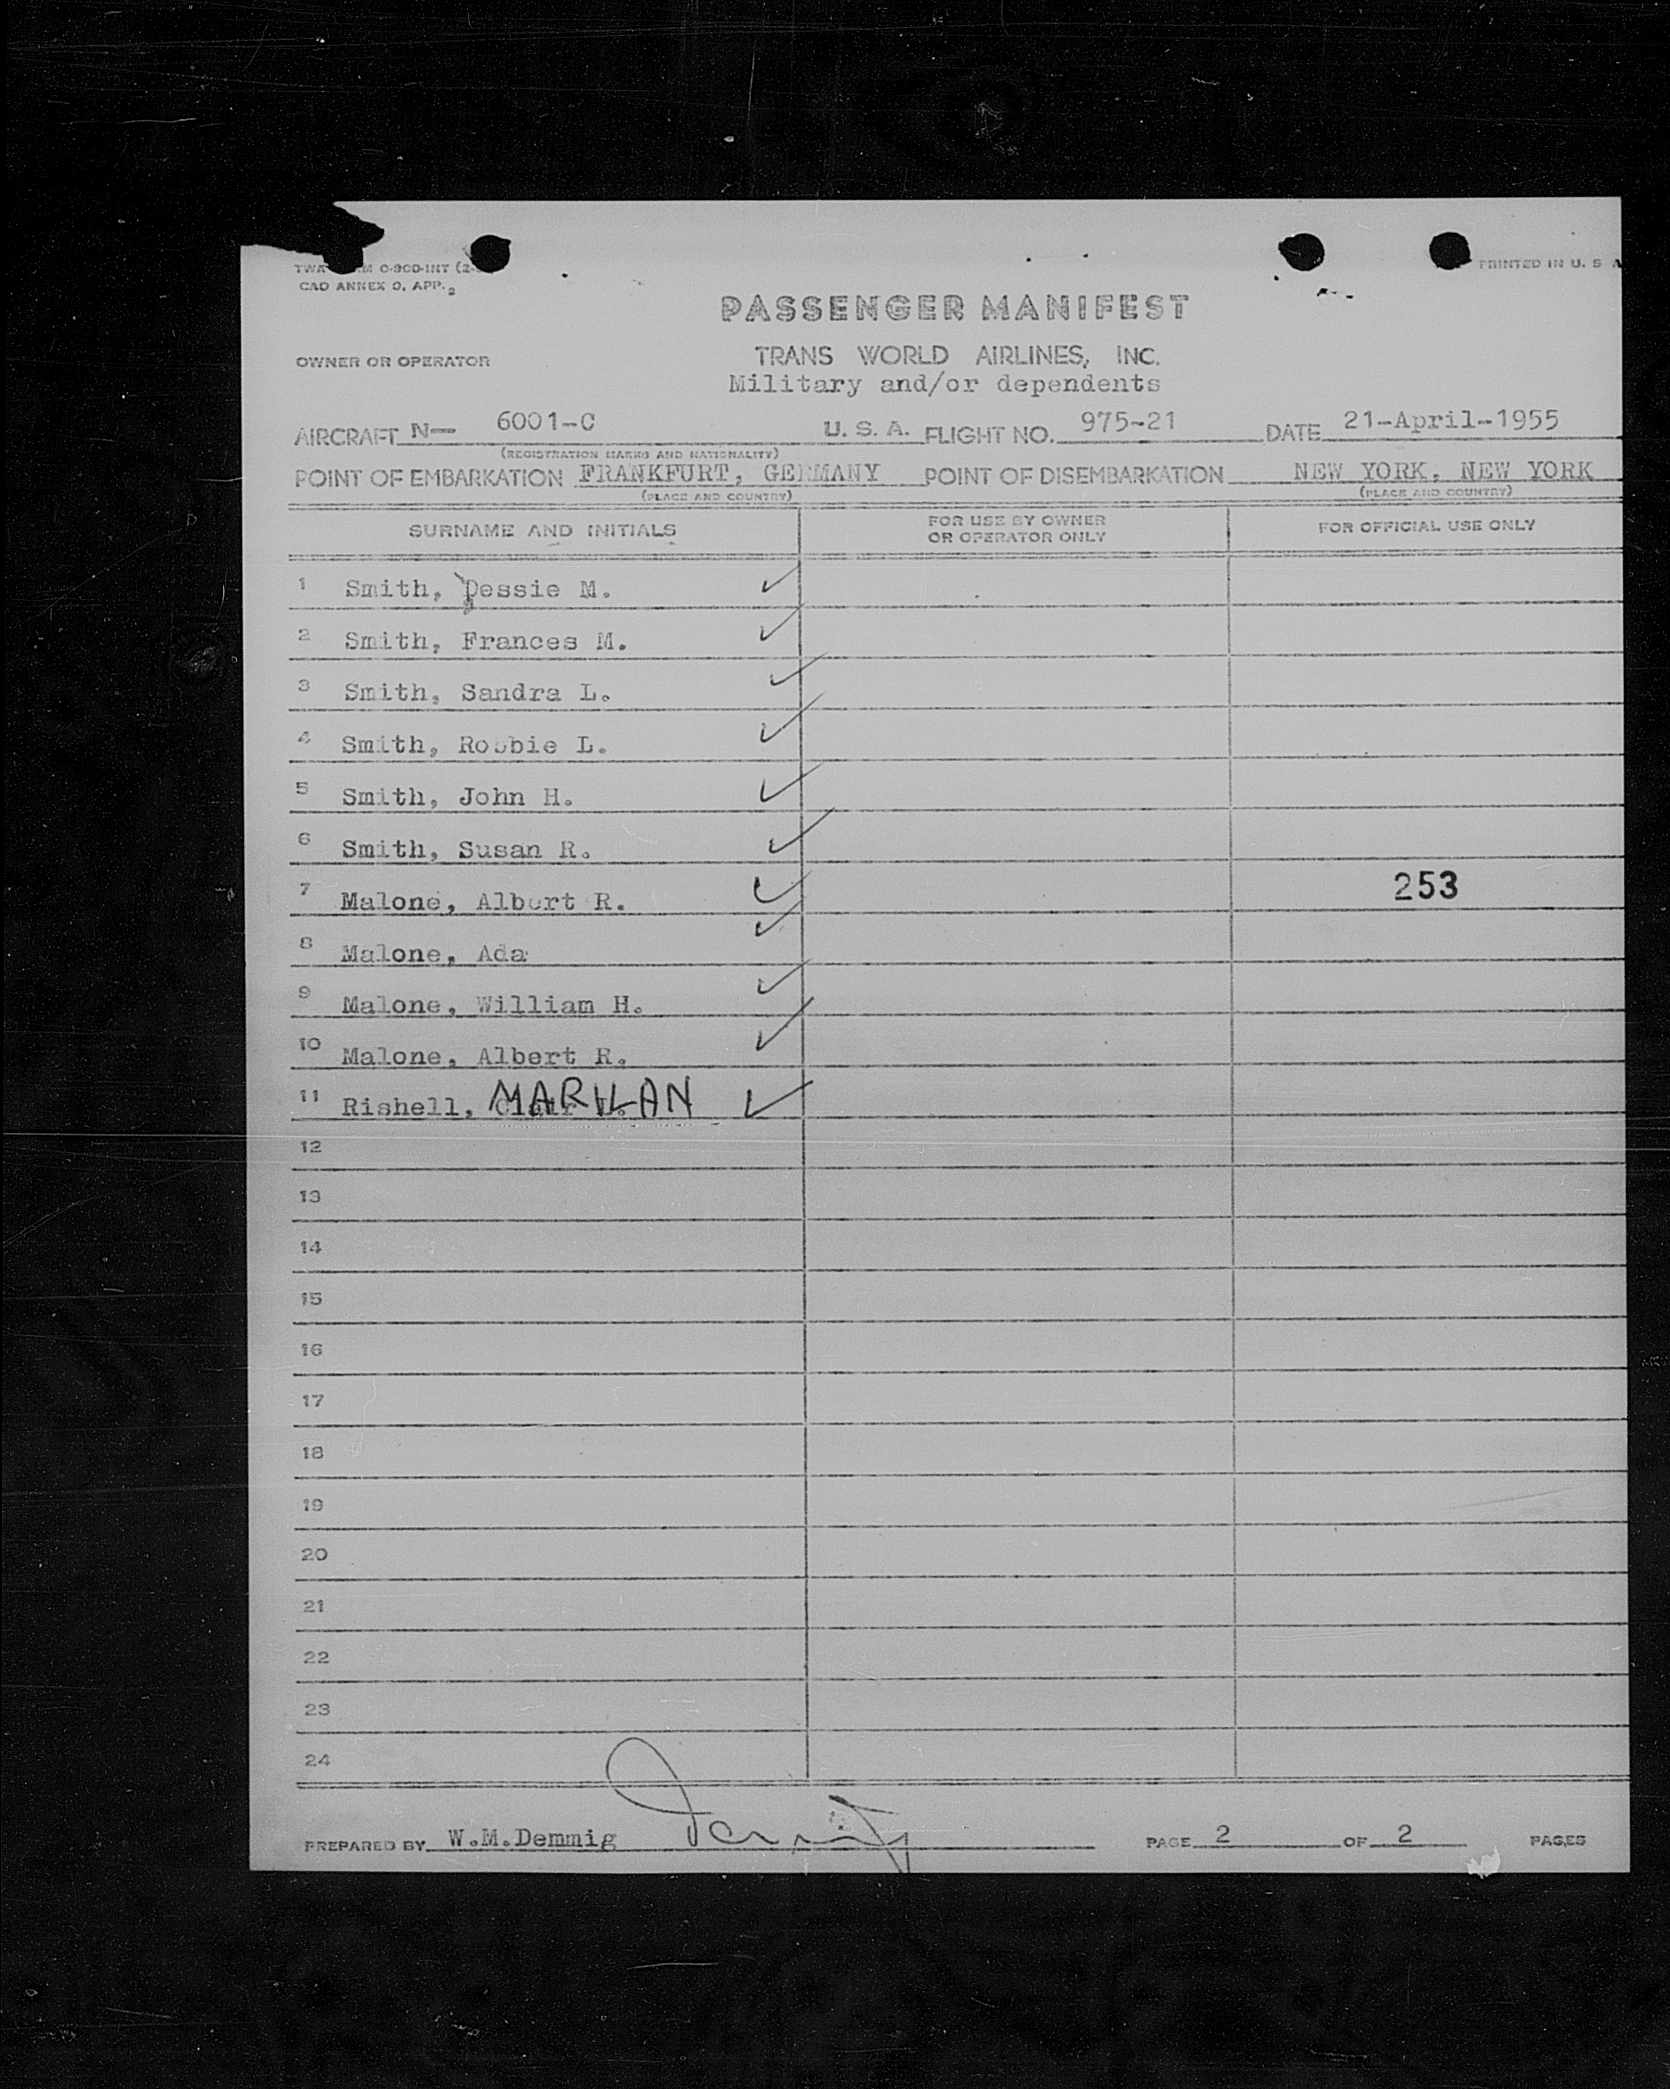 TWA C-90D-INT (2-
PRINTED IN U. S A
CAO ANNEX 9, APP. 2
PASSENGER MANIFEST
OWNER OR OPERATOR TRANS WORLD AIRLINES, INC.
Military and/or dependents
AIRCRAFT N— 6001-C U. S. A. FLIGHT NO. 975-21 DATE 21-April-1955
(REGISTRATION MARKS AND NATIONALITY)
POINT OF EMBARKATION FRANKFURT, GERMANY POINT OF DISEMBARKATION NEW YORK, NEW YORK
(PLACE AND COUNTRY) (PLACE AND COUNTRY)
SURNAME AND INITIALS FOR USE BY OWNER OR OPERATOR ONLY FOR OFFICIAL USE ONLY
1 Smith, Dessie M. ✓
2 Smith, Frances M. ✓
3 Smith, Sandra L. ✓
4 Smith, Robbie L. ✓
5 Smith, John H. ✓
6 Smith, Susan R. ✓
7 Malone, Albert R. ✓ 253
8 Malone, Ada ✓
9 Malone, William H. ✓
10 Malone, Albert R. ✓
11 Rishell, MARILAN ✓
12
13
14
15
16
17
18
19
20
21
22
23
24
PREPARED BY W.M.Demmig Demmig PAGE 2 OF 2 PAGES